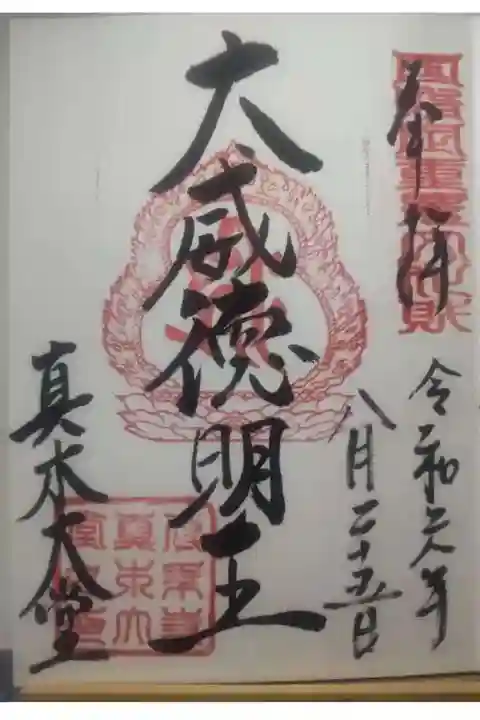 奉拝
令和六年
八月二十五日
大威徳明王
真木大堂